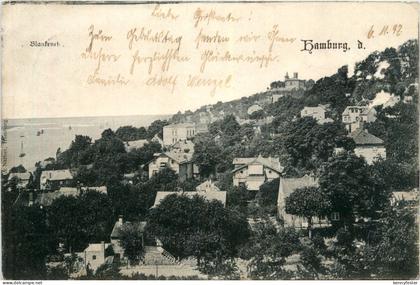 Liebe Grosstante!
Hamburg, d. 6.11.98
Blankenese.
Zum Geburtstag senden wir Dir
unsere herzlichsten Glückwünsche
Familie Adolf Wenzel